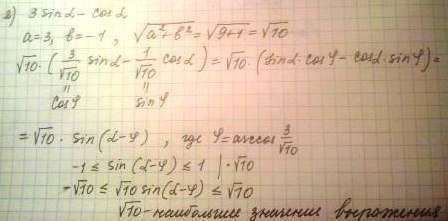 2) 3 sinα - cosα
a=3, b=-1, √(a²+b²)=√(9+1)=√10
√10·(3/√10 sinα - 1/√10 cosα)=√10·(sinα·cosφ - cosα·sinφ)=
= =
cosφ sinφ
=√10·sin(α-φ), где φ=arccos 3/√10
-1≤sin(α-φ)≤1 |·√10
-√10≤√10 sin(α-φ)≤√10
√10-наибольшее значение выражения